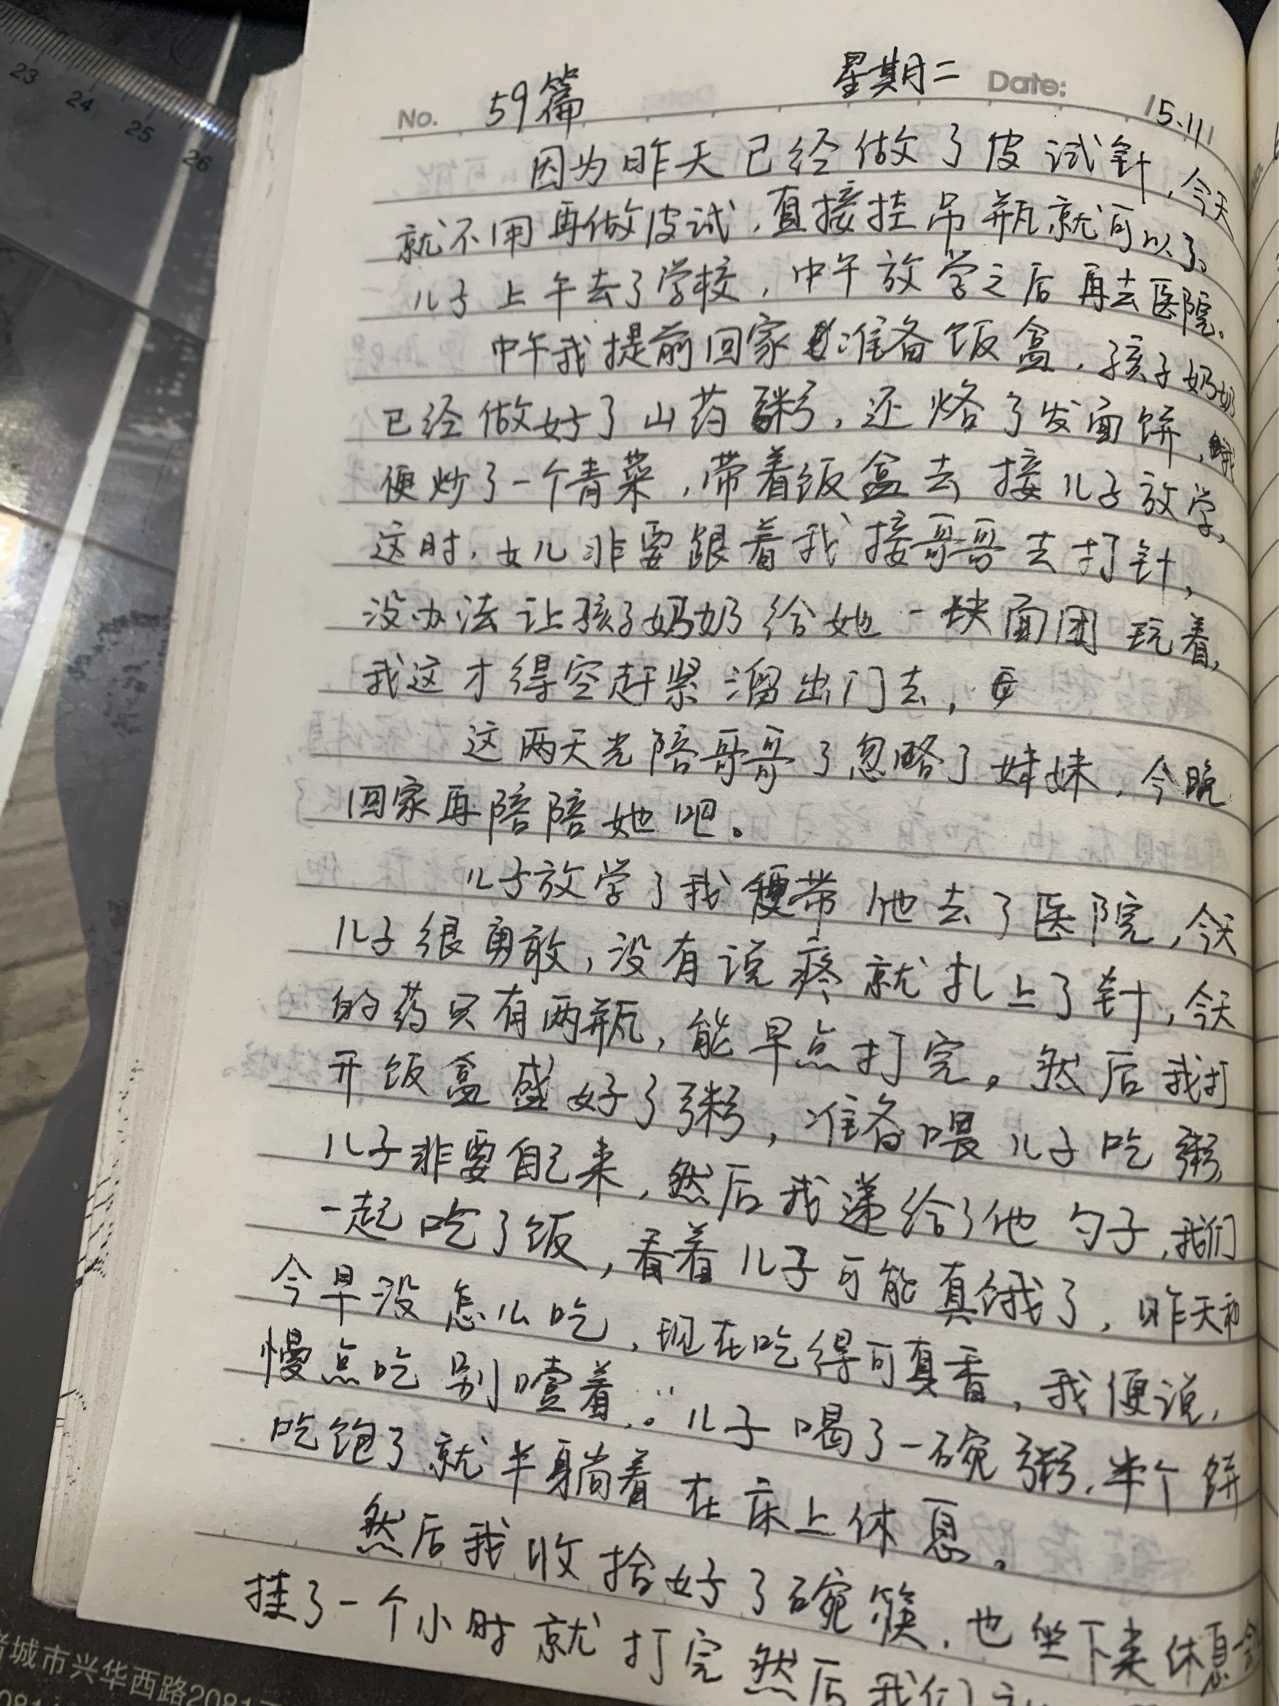 23 24 25 26
No. 59篇 星期二 Date: 15.11
因为昨天已经做了皮试针,今天
就不用再做皮试,直接挂吊瓶就可以了。
儿子上午去了学校,中午放学之后再去医院。
中午我提前回家准备饭盒,孩子奶奶
已经做好了山药粥,还烙了发面饼,我
便炒了一个青菜,带着饭盒去接儿子放学,
这时,女儿非要跟着我接哥哥去打针,
没办法让孩子奶奶给她一块面团玩着,
我这才得空赶紧溜出门去,
这两天光陪哥哥了忽略了妹妹,今晚
回家再陪陪她吧。
儿子放学了我便带他去了医院,今天
儿子很勇敢,没有说疼就扎上了针,今天
的药只有两瓶,能早点打完。然后我打
开饭盒盛好了粥,准备喂儿子吃粥,
儿子非要自己来,然后我递给了他勺子,我们
一起吃了饭,看着儿子可能真饿了,昨天和
今早没怎么吃,现在吃得可真香,我便说,
慢点吃别噎着。儿子喝了一碗粥,半个饼
吃饱了就半躺着在床上休息。
然后我收拾好了碗筷,也坐下来休息一会
挂了一个小时就打完然后我们
诸城市兴华西路2081